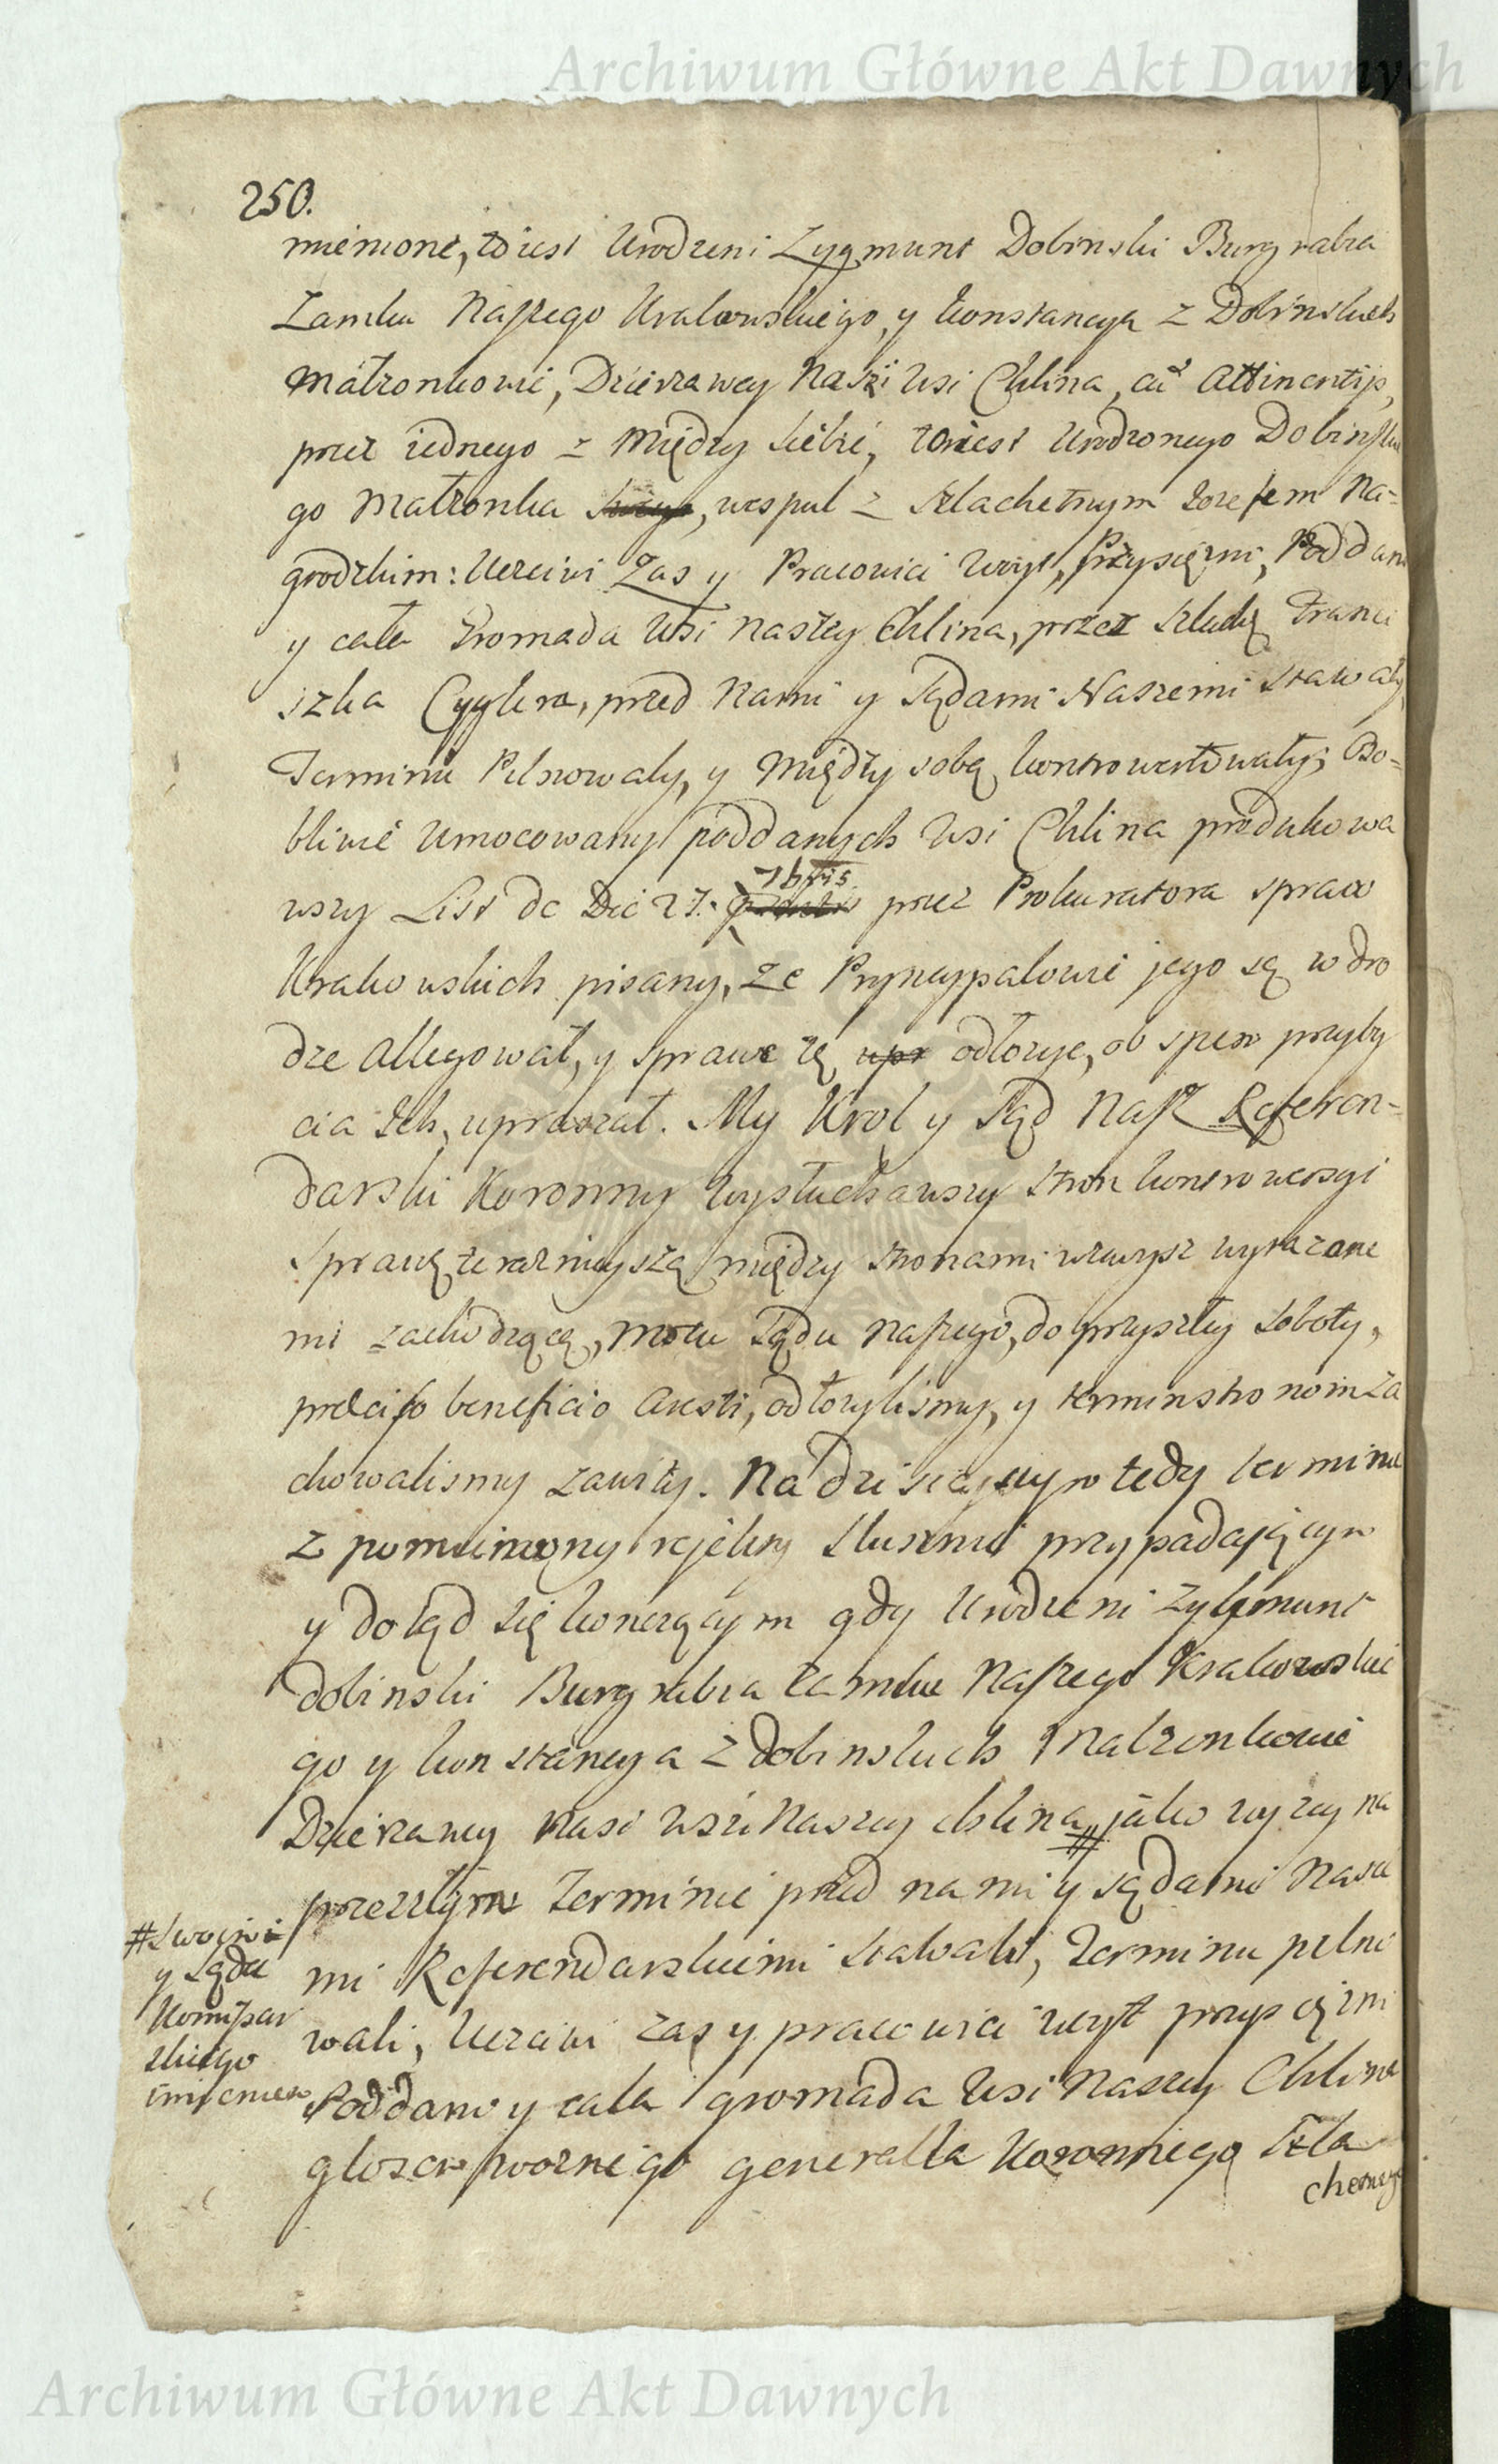 Archiwum Główne Akt Dawnych
250.
mienione, to iest Urodzeni Zygmunt Dobinski Burgrabia
Zamku Naszego Krakowskiego, y Konstancya z Dobinskich
Małzonkowie, Dzierzawcy Naszi Wsi Chlina, cũ Attinentijs,
przez iednego z między siebie, to iest Urodzonego Dobinskie
go Małzonka swego, wespuł z Szlachetnym Jozefem Na-
grodzkim: Uczciwi Zas y Pracowici Woyt, Przysięzni, Poddani
y cała Gromada Wsi Naszey Chlina, przez Szlachę Franci
szka Cyglera, przed Nami y Sądami Naszemi stawały,
Terminu Pilnowały, y między sobą kontrowertowały; Do-
bliwie Umocowany poddanych Wsi Chlina produkowa
wszy List de Die 27. 7bris przez Prokuratora spraw
Krakowskich pisany, ze Pryncypałowie jego są w dro
dze allegował, y sprawę tę upr odłozyc, ob spem przyby
cia Ich, upraszał. My Krol y Sąd Nasz Referen-
darski Koronny wysłuchawszy stron kontrowersyi
Sprawę teraznieyszą między stronami wzwysz wyrazone
mi zachodzącą, motu Sądu Naszego, do przyszłey Soboty,
præciso beneficio Aresti, odłozylismy, y termin stronom za
chowalismy zawity. Na dzisieyszym tedy terminie
z pomienioney rejekty słusznie przypadającym
y dotąd się konczącym gdy Urodzeni Zygmunt
Dobinski Burgrabia Zamku Naszego Krakowskie
go y Konstancya z Dobinskich Małzonkowie
Dzierzawcy Nasi Wsi Naszey Chlina # jako wyzey na
przeszłym Terminie przed nami y sądami Nasze
mi Referendarskiemi stawali, Terminu pilno
wali, Uczciwi zaś y pracowici woyt przysięzni
Poddani y cała gromada Wsi Naszey Chlina
głosem woznego generała Koronnego Szla
chetnego
# Swoim
y Sądu
Komissar
skiego
imieniem
Archiwum Główne Akt Dawnych